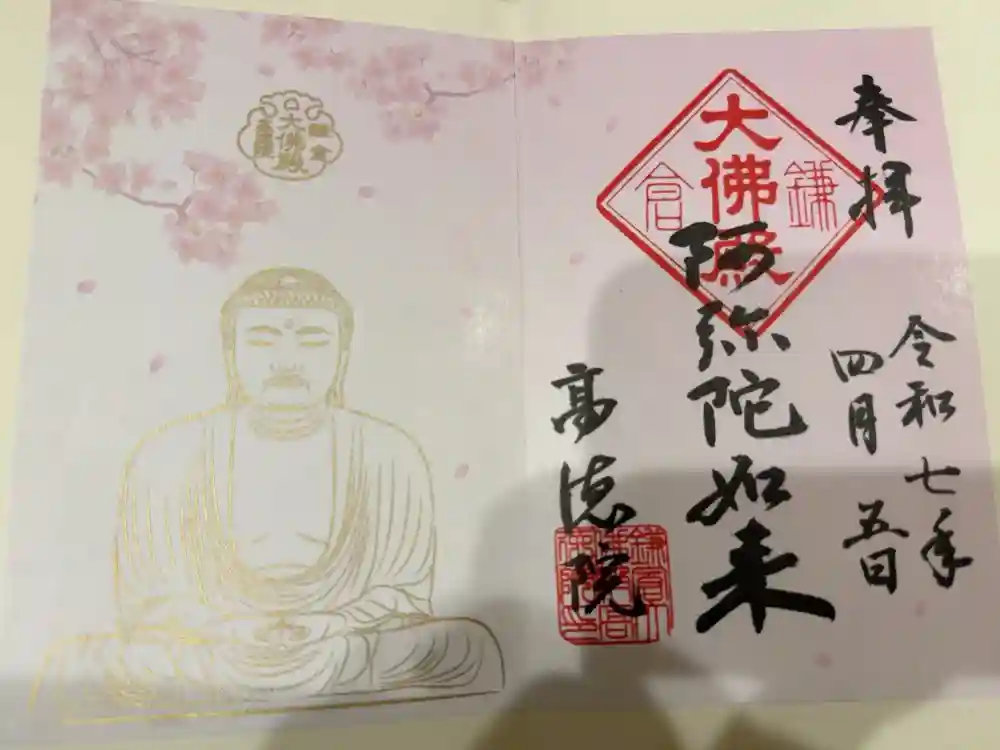 奉拝
令和七年
四月五日
鎌倉
大佛殿
阿弥陀如来
高徳院
大佛殿